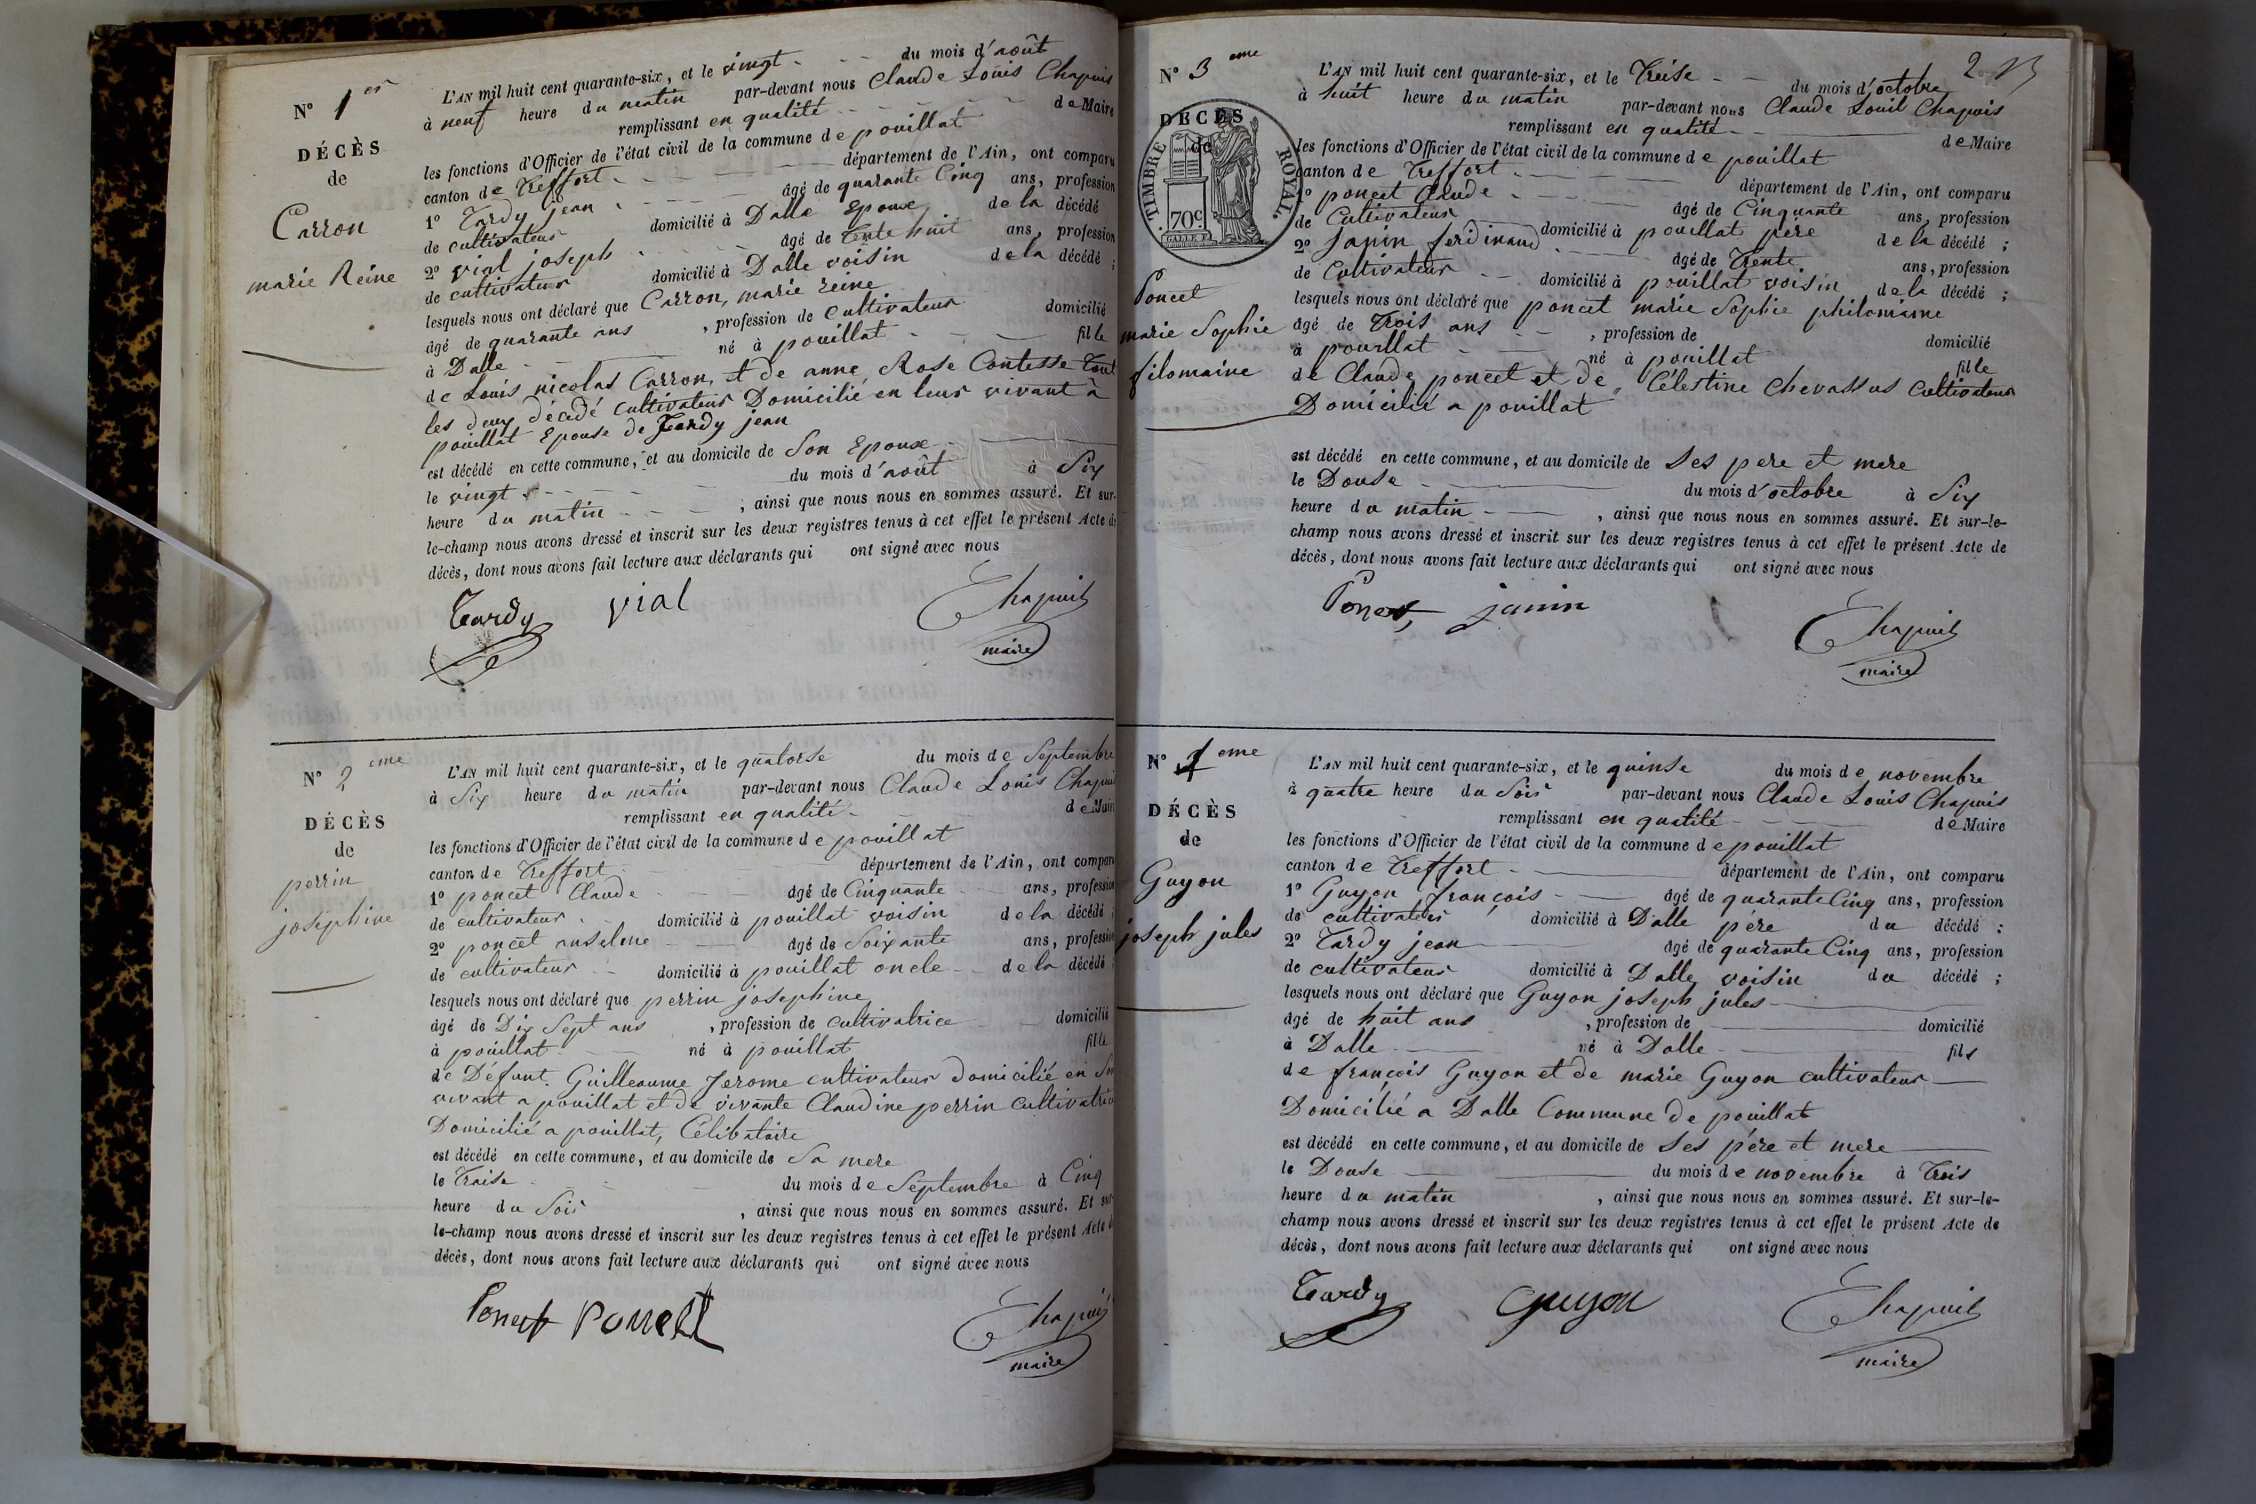 N° 1er
DÉCÈS
de
Carron
marie Reine
L'AN mil huit cent quarante-six, et le vingt du mois d'août
à neuf heure du matin par-devant nous Claude Louis Chapuis
remplissant en qualité de Maire
les fonctions d'Officier de l'état civil de la commune de pouillat
canton de Treffort département de l'Ain, ont comparu
1° Tardy jean âgé de quarante Cinq ans, profession
de cultivateur domicilié à Dalle Epoux de la décédé
2° vial joseph âgé de trente huit ans, profession
de cultivateur domicilié à Dalle voisin de la décédé ;
lesquels nous ont déclaré que Carron, marie reine
âgé de quarante ans , profession de Cultivateur domicilié
à Dalle né à pouillat fille
de Louis nicolas Carron, et de anne Rose Contesse tout
les deux décédé cultivateur Domicilié en leur vivant à
pouillat Epouse de Tardy jean
est décédé en cette commune, et au domicile de Son Epoux
le vingt du mois d'août à Six
heure du matin , ainsi que nous nous en sommes assuré. Et sur-
le-champ nous avons dressé et inscrit sur les deux registres tenus à cet effet le présent Acte de
décès, dont nous avons fait lecture aux déclarants qui ont signé avec nous
Tardy vial Chapuis
maire
N° 2eme
DÉCÈS
de
perrin
josephine
L'AN mil huit cent quarante-six, et le quatorse du mois de Septembre
à Six heure du matin par-devant nous Claude Louis Chapuis
remplissant en qualité de Maire
les fonctions d'Officier de l'état civil de la commune de pouillat
canton de Treffort département de l'Ain, ont comparu
1° poncet Claude âgé de Cinquante ans, profession
de cultivateur domicilié à pouillat voisin de la décédé ;
2° poncet anselme âgé de Soixante ans, profession
de cultivateur domicilié à pouillat oncle de la décédé
lesquels nous ont déclaré que perrin josephine
âgé de Dix Sept ans , profession de cultivatrice domicilié
à pouillat né à pouillat fille
de Défunt Guilleaume Jerome cultivateur domicilié en Son
vivant a pouillat et de vivante Claudine perrin cultivatrice
Domicilié a pouillat, Célibataire
est décédé en cette commune, et au domicile de Sa mere
le Traise du mois de Septembre à Cinq
heure du Soir , ainsi que nous nous en sommes assuré. Et sur-
le-champ nous avons dressé et inscrit sur les deux registres tenus à cet effet le présent Acte de
décès, dont nous avons fait lecture aux déclarants qui ont signé avec nous
Poncet Poncet Chapuis
maire
2
N° 3eme
DÉCÈS
de
TIMBRE ROYAL.
70c
Poncet
marie Sophie
filomaine
L'AN mil huit cent quarante-six, et le Treise du mois d'octobre
à huit heure du matin par-devant nous Claude Louis Chapuis
remplissant en qualité de Maire
les fonctions d'Officier de l'état civil de la commune de pouillat
canton de Treffort département de l'Ain, ont comparu
1° poncet Claude âgé de Cinquante ans, profession
de Cultivateur domicilié à pouillat père de la décédé ;
2° janin ferdinand âgé de Trente ans, profession
de Cultivateur domicilié à pouillat voisin de la décédé ;
lesquels nous ont déclaré que poncet marie Sophie philomaine
âgé de Trois ans , profession de domicilié
à pouillat né à pouillat fille
de Claude poncet et de Célestine Chevassus Cultivateur
Domicilié a pouillat
est décédé en cette commune, et au domicile de Ses pere et mere
le Douse du mois d'octobre à Six
heure du matin , ainsi que nous nous en sommes assuré. Et sur-le-
champ nous avons dressé et inscrit sur les deux registres tenus à cet effet le présent Acte de
décès, dont nous avons fait lecture aux déclarants qui ont signé avec nous
Poncet janin Chapuis
maire
N° 4eme
DÉCÈS
de
Guyon
joseph jules
L'AN mil huit cent quarante-six, et le quinse du mois de novembre
à quatre heure du Soir par-devant nous Claude Louis Chapuis
remplissant en qualité de Maire
les fonctions d'Officier de l'état civil de la commune de pouillat
canton de Treffort département de l'Ain, ont comparu
1° Guyon françois âgé de quarante Cinq ans, profession
de cultivateur domicilié à Dalle père du décédé ;
2° Tardy jean âgé de quarante Cinq ans, profession
de cultivateur domicilié à Dalle voisin du décédé ;
lesquels nous ont déclaré que Guyon joseph jules
âgé de huit ans , profession de domicilié
à Dalle né à Dalle fils
de françois Guyon et de marie Guyon cultivateur
Domicilié a Dalle Commune de pouillat
est décédé en cette commune, et au domicile de Ses père et mere
le Douse du mois de novembre à Trois
heure du matin , ainsi que nous nous en sommes assuré. Et sur-le-
champ nous avons dressé et inscrit sur les deux registres tenus à cet effet le présent Acte de
décès, dont nous avons fait lecture aux déclarants qui ont signé avec nous
Tardy guyon Chapuis
maire